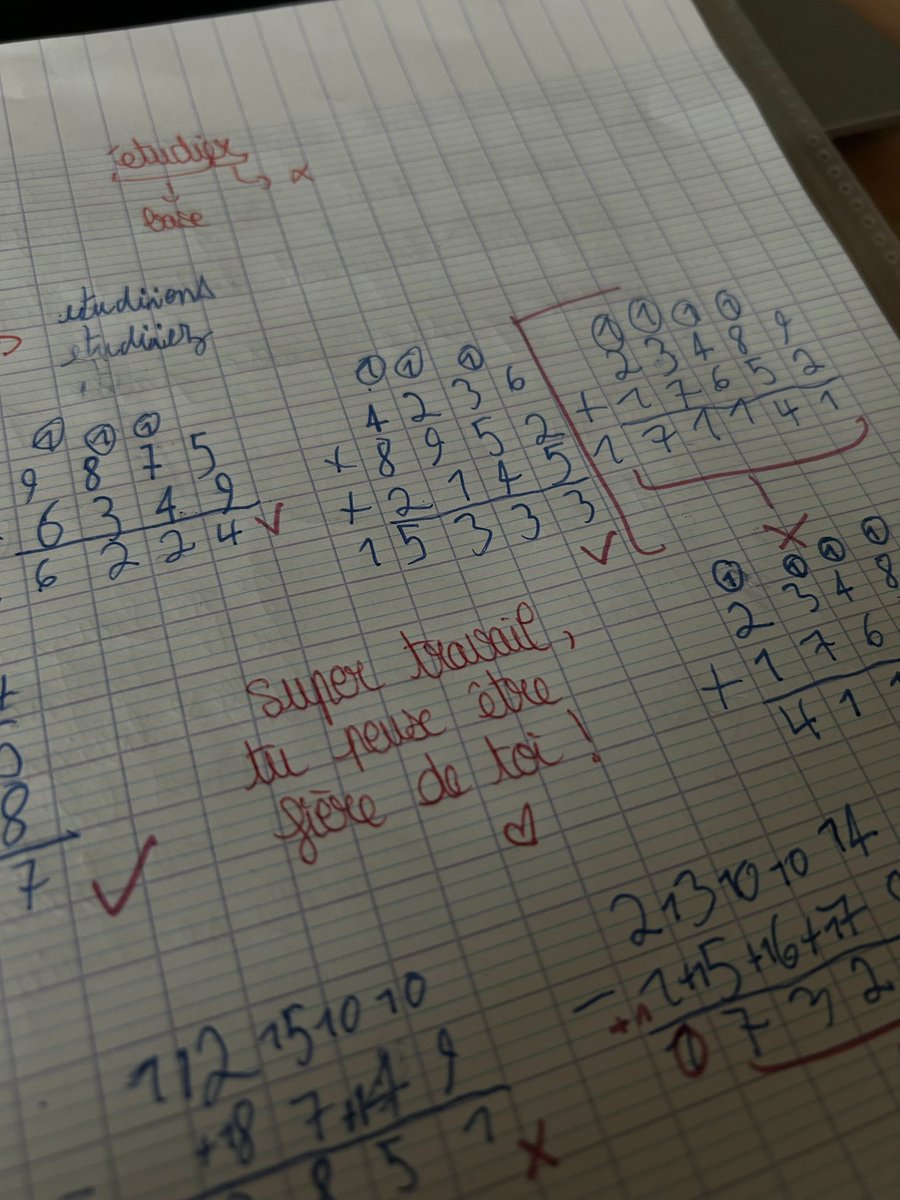 etudier
↳ x
↓
base
etudiions
etudiiez
① ① ①
9 8 7 5
6 3 4 9
6 2 2 4 ✓
① ① ①
4 2 3 6
+ 8 9 5 2
+ 2 1 4 5
1 5 3 3 3 ✓
① ① ① ①
2 3 4 8 9
+ 1 7 6 5 2
1 7 1 1 4 1
X
① ① ① ①
2 3 4 8
+ 1 7 6
4 1 1
0
8
7 ✓
super travail,
tu peux être
fière de toi !
♡
2 13 10 10 14
- 1 +15 +16 +17
+1
0 7 3 2
1 12 15 10 10
+18 7 +14 9
8 5 1 X